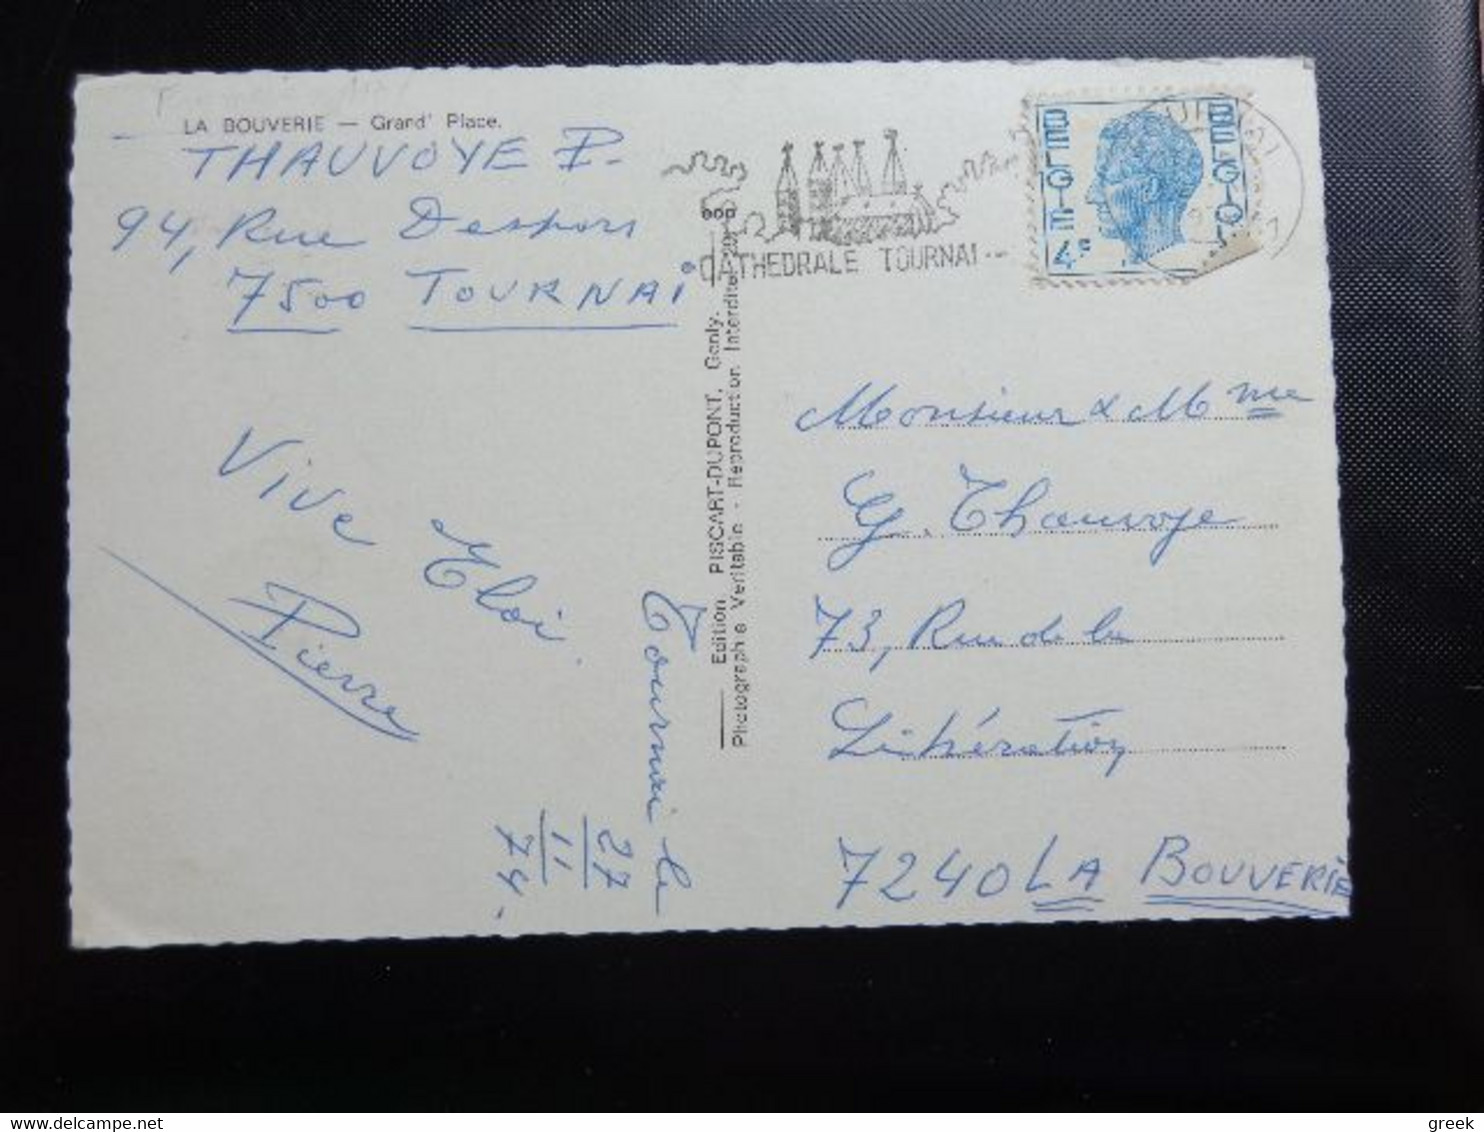 LA BOUVERIE — Grand' Place.
THAUVOYE P.
94, Rue Despars
7500 TOURNAI
Vive Eloi.
Pierre
Tournai le
27
11
74.
Edition PISCART-DUPONT, Genly.
Photographie Veritable - Reproduction Interdite
CATHEDRALE TOURNAI
BELGIE
BELGIQUE
4F
Monsieur & Mme
G. Thauvoye
73, Rue de la
Libération
7240 LA BOUVERIE
greek